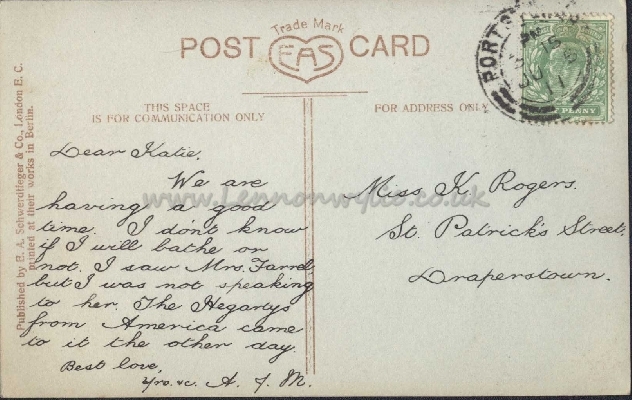 Trade Mark
POST EAS CARD
THIS SPACE
IS FOR COMMUNICATION ONLY
FOR ADDRESS ONLY
Published by E. A. Schwerdtfeger & Co., London E. C.
printed at their works in Berlin.
Dear Katie,
We are
having a good
time. I don't know
if I will bathe or
not. I saw Mrs. Farrel,
but I was not speaking
to her. The Hegartys
from America came
to it the other day.
Best love,
A. J. M.
Miss K Rogers.
St. Patrick's Street.
Draperstown.
PENNY
www.Lennonwylie.co.uk